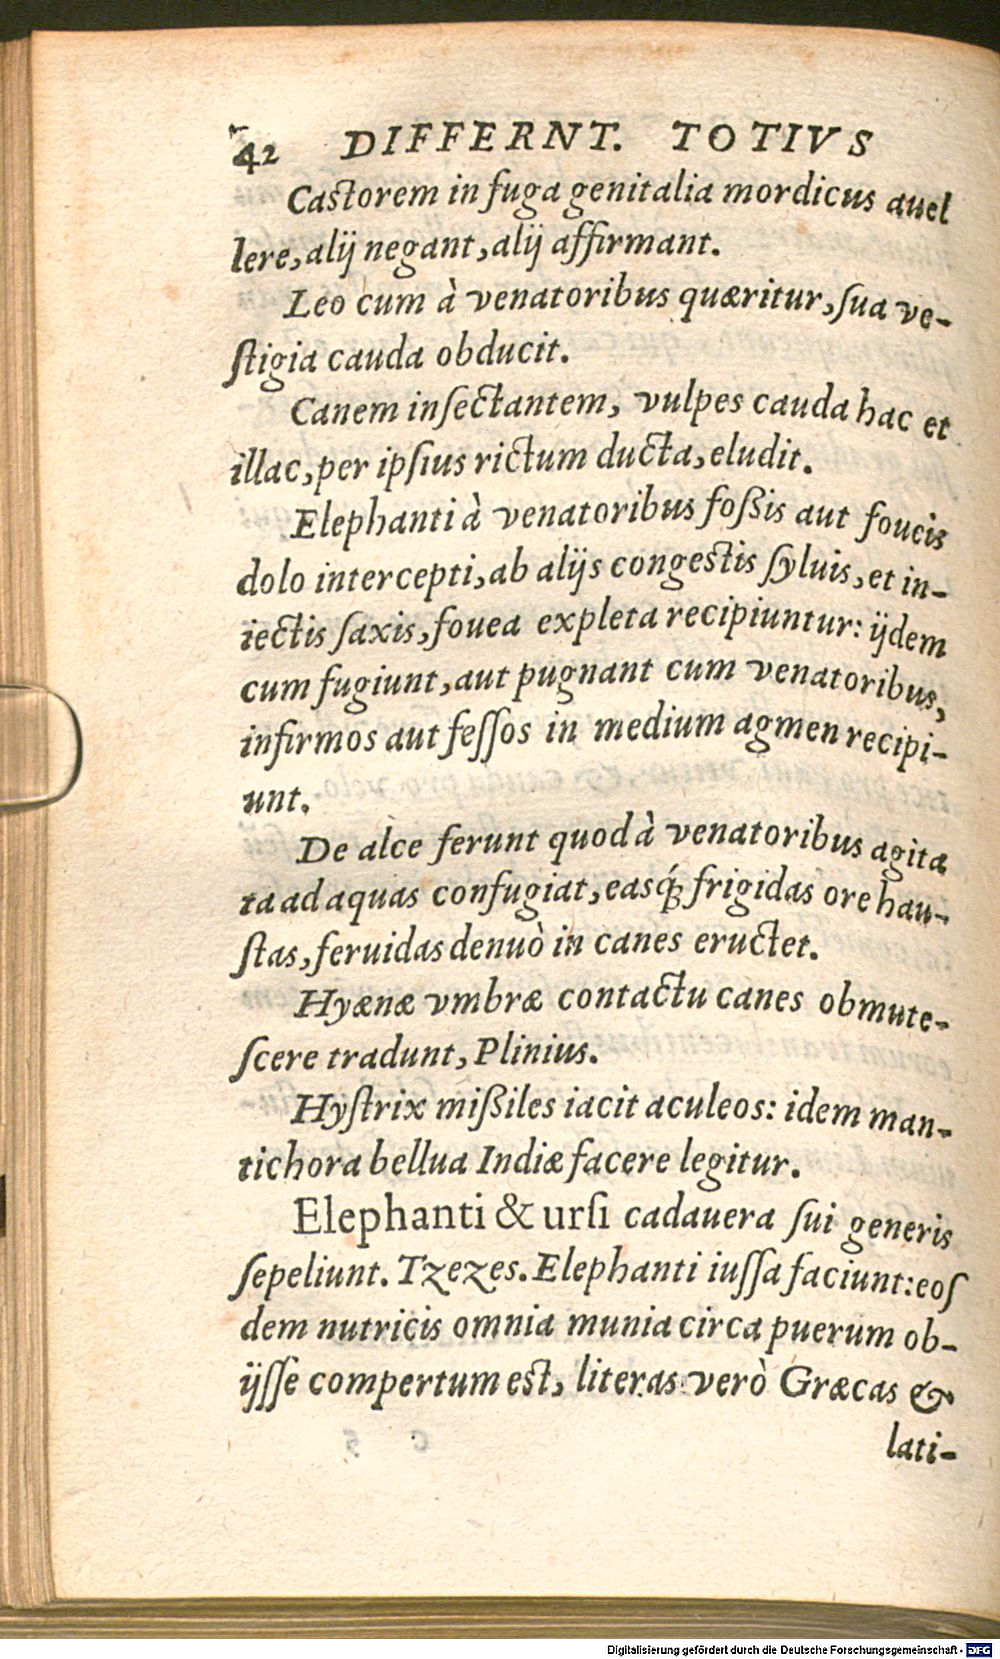 42 DIFFERNT. TOTIVS
Castorem in fuga genitalia mordicus auel
lere, alij negant, alij affirmant.
Leo cum à venatoribus quæritur, sua ve-
ſtigia cauda obducit.
Canem inſectantem, vulpes cauda hac et
illac, per ipſius rictum ducta, eludit.
Elephanti à venatoribus foßis aut foucis
dolo intercepti, ab alijs congeſtis ſyluis, et in-
iectis ſaxis, fouea expleta recipiuntur: ijdem
cum fugiunt, aut pugnant cum venatoribus,
infirmos aut feſſos in medium agmen recipi-
unt.
De alce ferunt quod à venatoribus agita
ta ad aquas confugiat, easq́; frigidas ore hau-
ſtas, feruidas denuò in canes eructet.
Hyænæ vmbræ contactu canes obmute-
ſcere tradunt, Plinius.
Hyſtrix mißiles iacit aculeos: idem man-
tichora bellua Indiæ facere legitur.
Elephanti & urſi cadauera ſui generis
ſepeliunt. Tzezes. Elephanti iuſſa faciunt: eoſ
dem nutricis omnia munia circa puerum ob-
ijſſe compertum est, literas verò Græcas &
lati-
Digitalisierung gefördert durch die Deutsche Forschungsgemeinschaft - DFG